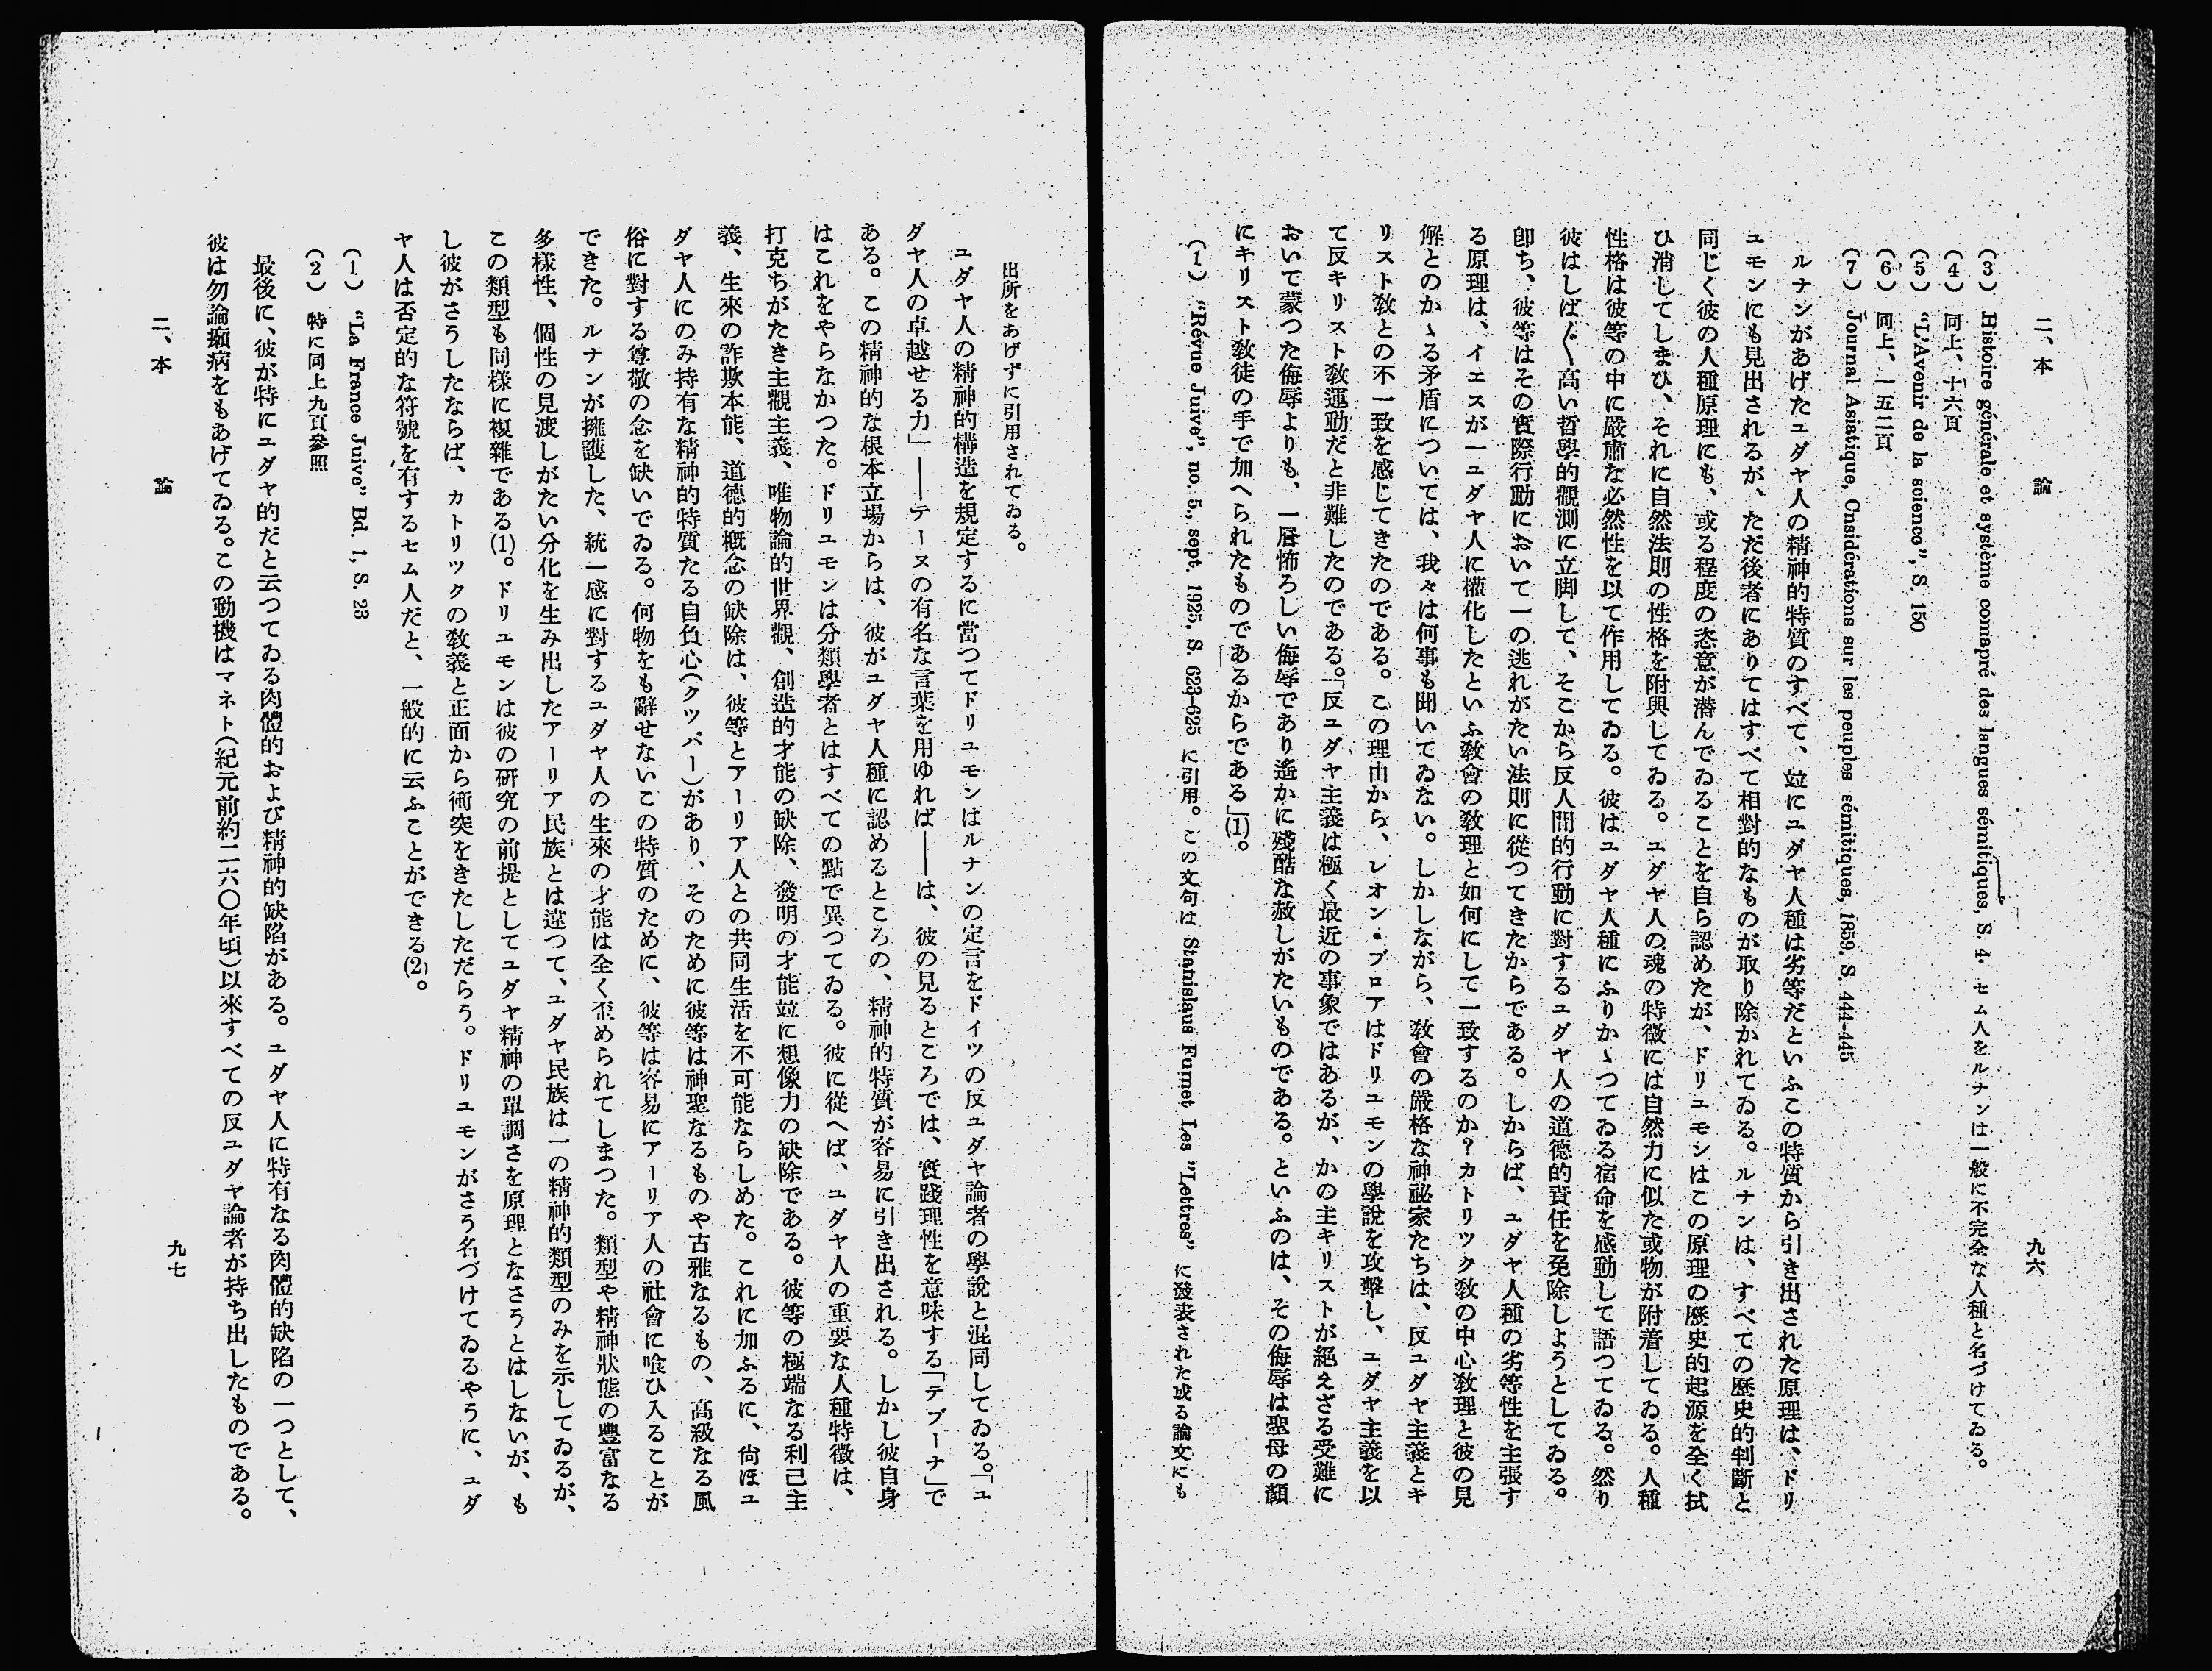 二、本　論
九六
(3)　Histoire générale et système comapré des langues sémitiques, S. 4. セム人をルナンは一般に不完全な人種と名づけてゐる。
(4)　同上、十六頁
(5)　“L'Avenir de la science”, S. 150
(6)　同上、一五二頁
(7)　Journal Asiatique, Cnsidérations sur les peuples sémitiques, 1859. S. 444-445
ルナンがあげたユダヤ人の精神的特質のすべて、竝にユダヤ人種は劣等だといふこの特質から引き出された原理は、ドリ
ユモンにも見出されるが、ただ後者にありてはすべて相對的なものが取り除かれてゐる。ルナンは、すべての歷史的判斷と
同じく彼の人種原理にも、或る程度の恣意が潜んでゐることを自ら認めたが、ドリユモンはこの原理の歷史的起源を全く拭
ひ消してしまひ、それに自然法則の性格を附與してゐる。ユダヤ人の魂の特徵には自然力に似た或物が附着してゐる。人種
性格は彼等の中に嚴肅な必然性を以て作用してゐる。彼はユダヤ人種にふりかゝつてゐる宿命を感動して語つてゐる。然り
彼はしば〱高い哲學的觀測に立脚して、そこから反人間的行動に對するユダヤ人の道德的責任を免除しようとしてゐる。
卽ち、彼等はその實際行動において一の逃れがたい法則に從つてきたからである。しからば、ユダヤ人種の劣等性を主張す
る原理は、イエスが一ユダヤ人に權化したといふ敎會の敎理と如何にして一致するのか?カトリツク敎の中心敎理と彼の見
解とのかゝる矛盾については、我々は何事も聞いてゐない。しかしながら、敎會の嚴格な神祕家たちは、反ユダヤ主義とキ
リスト敎との不一致を感じてきたのである。この理由から、レオン・ブロアはドリユモンの學說を攻擊し、ユダヤ主義を以
て反キリスト敎運動だと非難したのである。「反ユダヤ主義は極く最近の事象ではあるが、かの主キリストが絕えざる受難に
おいて蒙つた侮辱よりも、一層怖ろしい侮辱であり遙かに殘酷な赦しがたいものである。といふのは、その侮辱は聖母の顏
にキリスト敎徒の手で加へられたものであるからである」(1)。
(1)　“Révue Juive”, no. 5., sept. 1925, S. 623-625 に引用。この文句は Stanislaus Fumet Les ”Lettres” に發表された或る論文にも
出所をあげずに引用されてゐる。
ユダヤ人の精神的構造を規定するに當つてドリユモンはルナンの定言をドイツの反ユダヤ論者の學說と混同してゐる。「ユ
ダヤ人の卓越せる力」――テーヌの有名な言葉を用ゆれば――は、彼の見るところでは、實踐理性を意味する「テブーナ」で
ある。この精神的な根本立場からは、彼がユダヤ人種に認めるところの、精神的特質が容易に引き出される。しかし彼自身
はこれをやらなかつた。ドリユモンは分類學者とはすべての點で異つてゐる。彼に從へば、ユダヤ人の重要な人種特徵は、
打克ちがたき主觀主義、唯物論的世界觀、創造的才能の缺除、發明の才能竝に想像力の缺除である。彼等の極端なる利己主
義、生來の詐欺本能、道德的槪念の缺除は、彼等とアーリア人との共同生活を不可能ならしめた。これに加ふるに、尙ほユ
ダヤ人にのみ持有な精神的特質たる自負心(クツパー)があり、そのために彼等は神聖なるものや古雅なるもの、高級なる風
俗に對する尊敬の念を缺いでゐる。何物をも辭せないこの特質のために、彼等は容易にアーリア人の社會に喰ひ入ることが
できた。ルナンが擁護した、統一感に對するユダヤ人の生來の才能は全く歪められてしまつた。類型や精神狀態の豐富なる
多樣性、個性の見渡しがたい分化を生み出したアーリア民族とは違つて、ユダヤ民族は一の精神的類型のみを示してゐるが、
この類型も同樣に複雜である(1)。ドリユモンは彼の硏究の前提としてユダヤ精神の單調さを原理となさうとはしないが、も
し彼がさうしたならば、カトリツクの敎義と正面から衝突をきたしただらう。ドリユモンがさう名づけてゐるやうに、ユダ
ヤ人は否定的な符號を有するセム人だと、一般的に云ふことができる(2)。
(1)　“La France Juive” Bd. 1, S. 23
(2)　特に同上九頁參照
最後に、彼が特にユダヤ的だと云つてゐる肉體的および精神的缺陷がある。ユダヤ人に特有なる肉體的缺陷の一つとして、
彼は勿論癩病をもあげてゐる。この動機はマネト(紀元前約二六〇年頃)以來すべての反ユダヤ論者が持ち出したものである。
二、本　論
九七